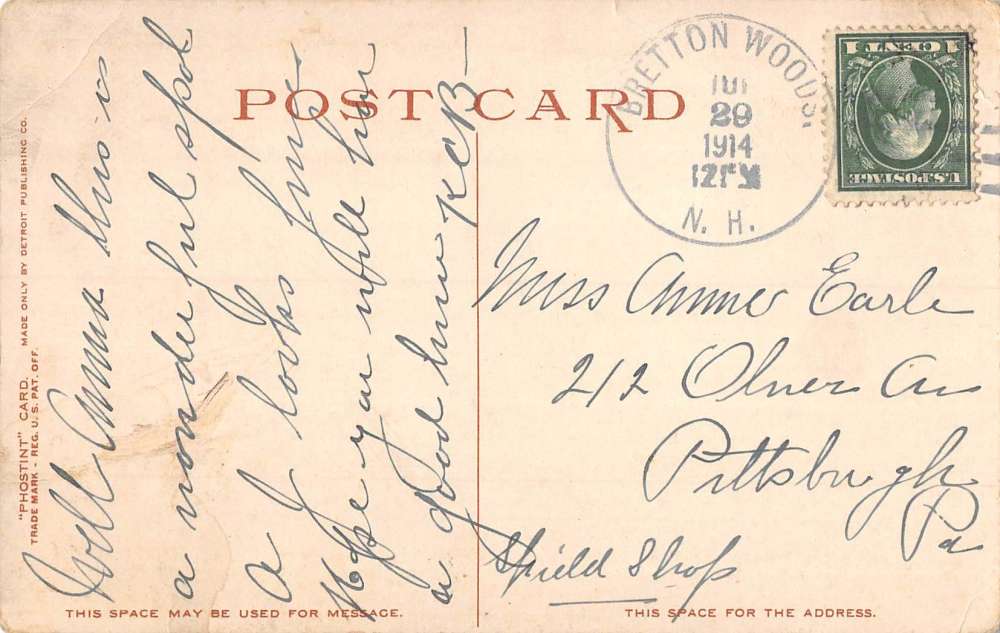 POST CARD
"PHOSTINT" CARD. MADE ONLY BY DETROIT PUBLISHING CO.
TRADE MARK - REG. U.S. PAT. OFF.
Well Anna this is
a wonderful spot
a looks fine
Hope you will have
a good time KCB—
THIS SPACE MAY BE USED FOR MESSAGE.
BRETTON WOODS,
29
1914
12 PM
N. H.
1 CENT 1
U.S. POSTAGE
Miss Earle
212 Av
Pittsburgh
Pa
Shop
THIS SPACE FOR THE ADDRESS.